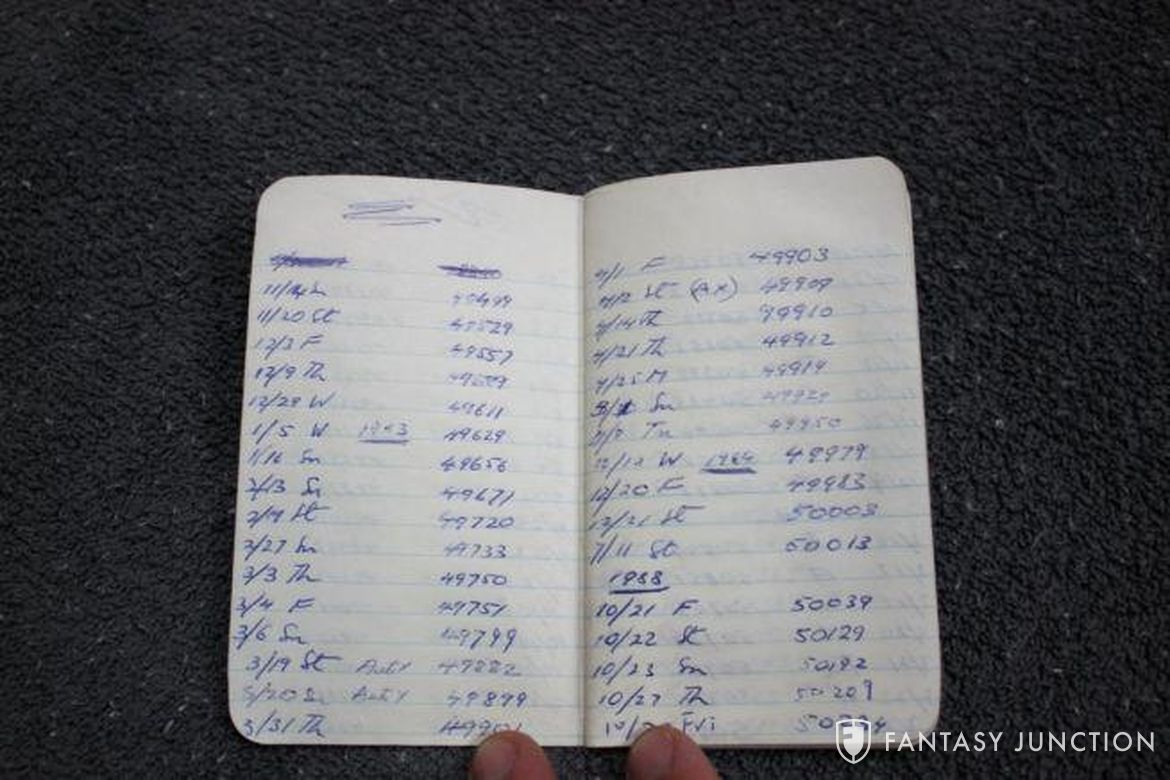 11/14 Sn 49499
11/20 St 49529
12/3 F 49557
12/9 Th
12/29 W 49611
1/5 W 1983 49629
1/16 Sn 49656
2/13 Sn 49671
2/19 St 49720
2/27 Sn 49733
3/3 Th 49750
3/4 F 49751
3/6 Sn 49799
3/19 St 49882
3/20 Sn 49899
3/31 Th
4/1 F 49903
4/2 St 49909
4/14 Th 49910
4/21 Th 49912
4/25 M 49914
Sn
Tu 49950
W 1984 49979
12/20 F 49983
12/21 St 50003
7/11 St 50013
1988
10/21 F 50039
10/22 St 50129
10/23 Sn 50192
10/27 Th 50209
Fri
FANTASY JUNCTION